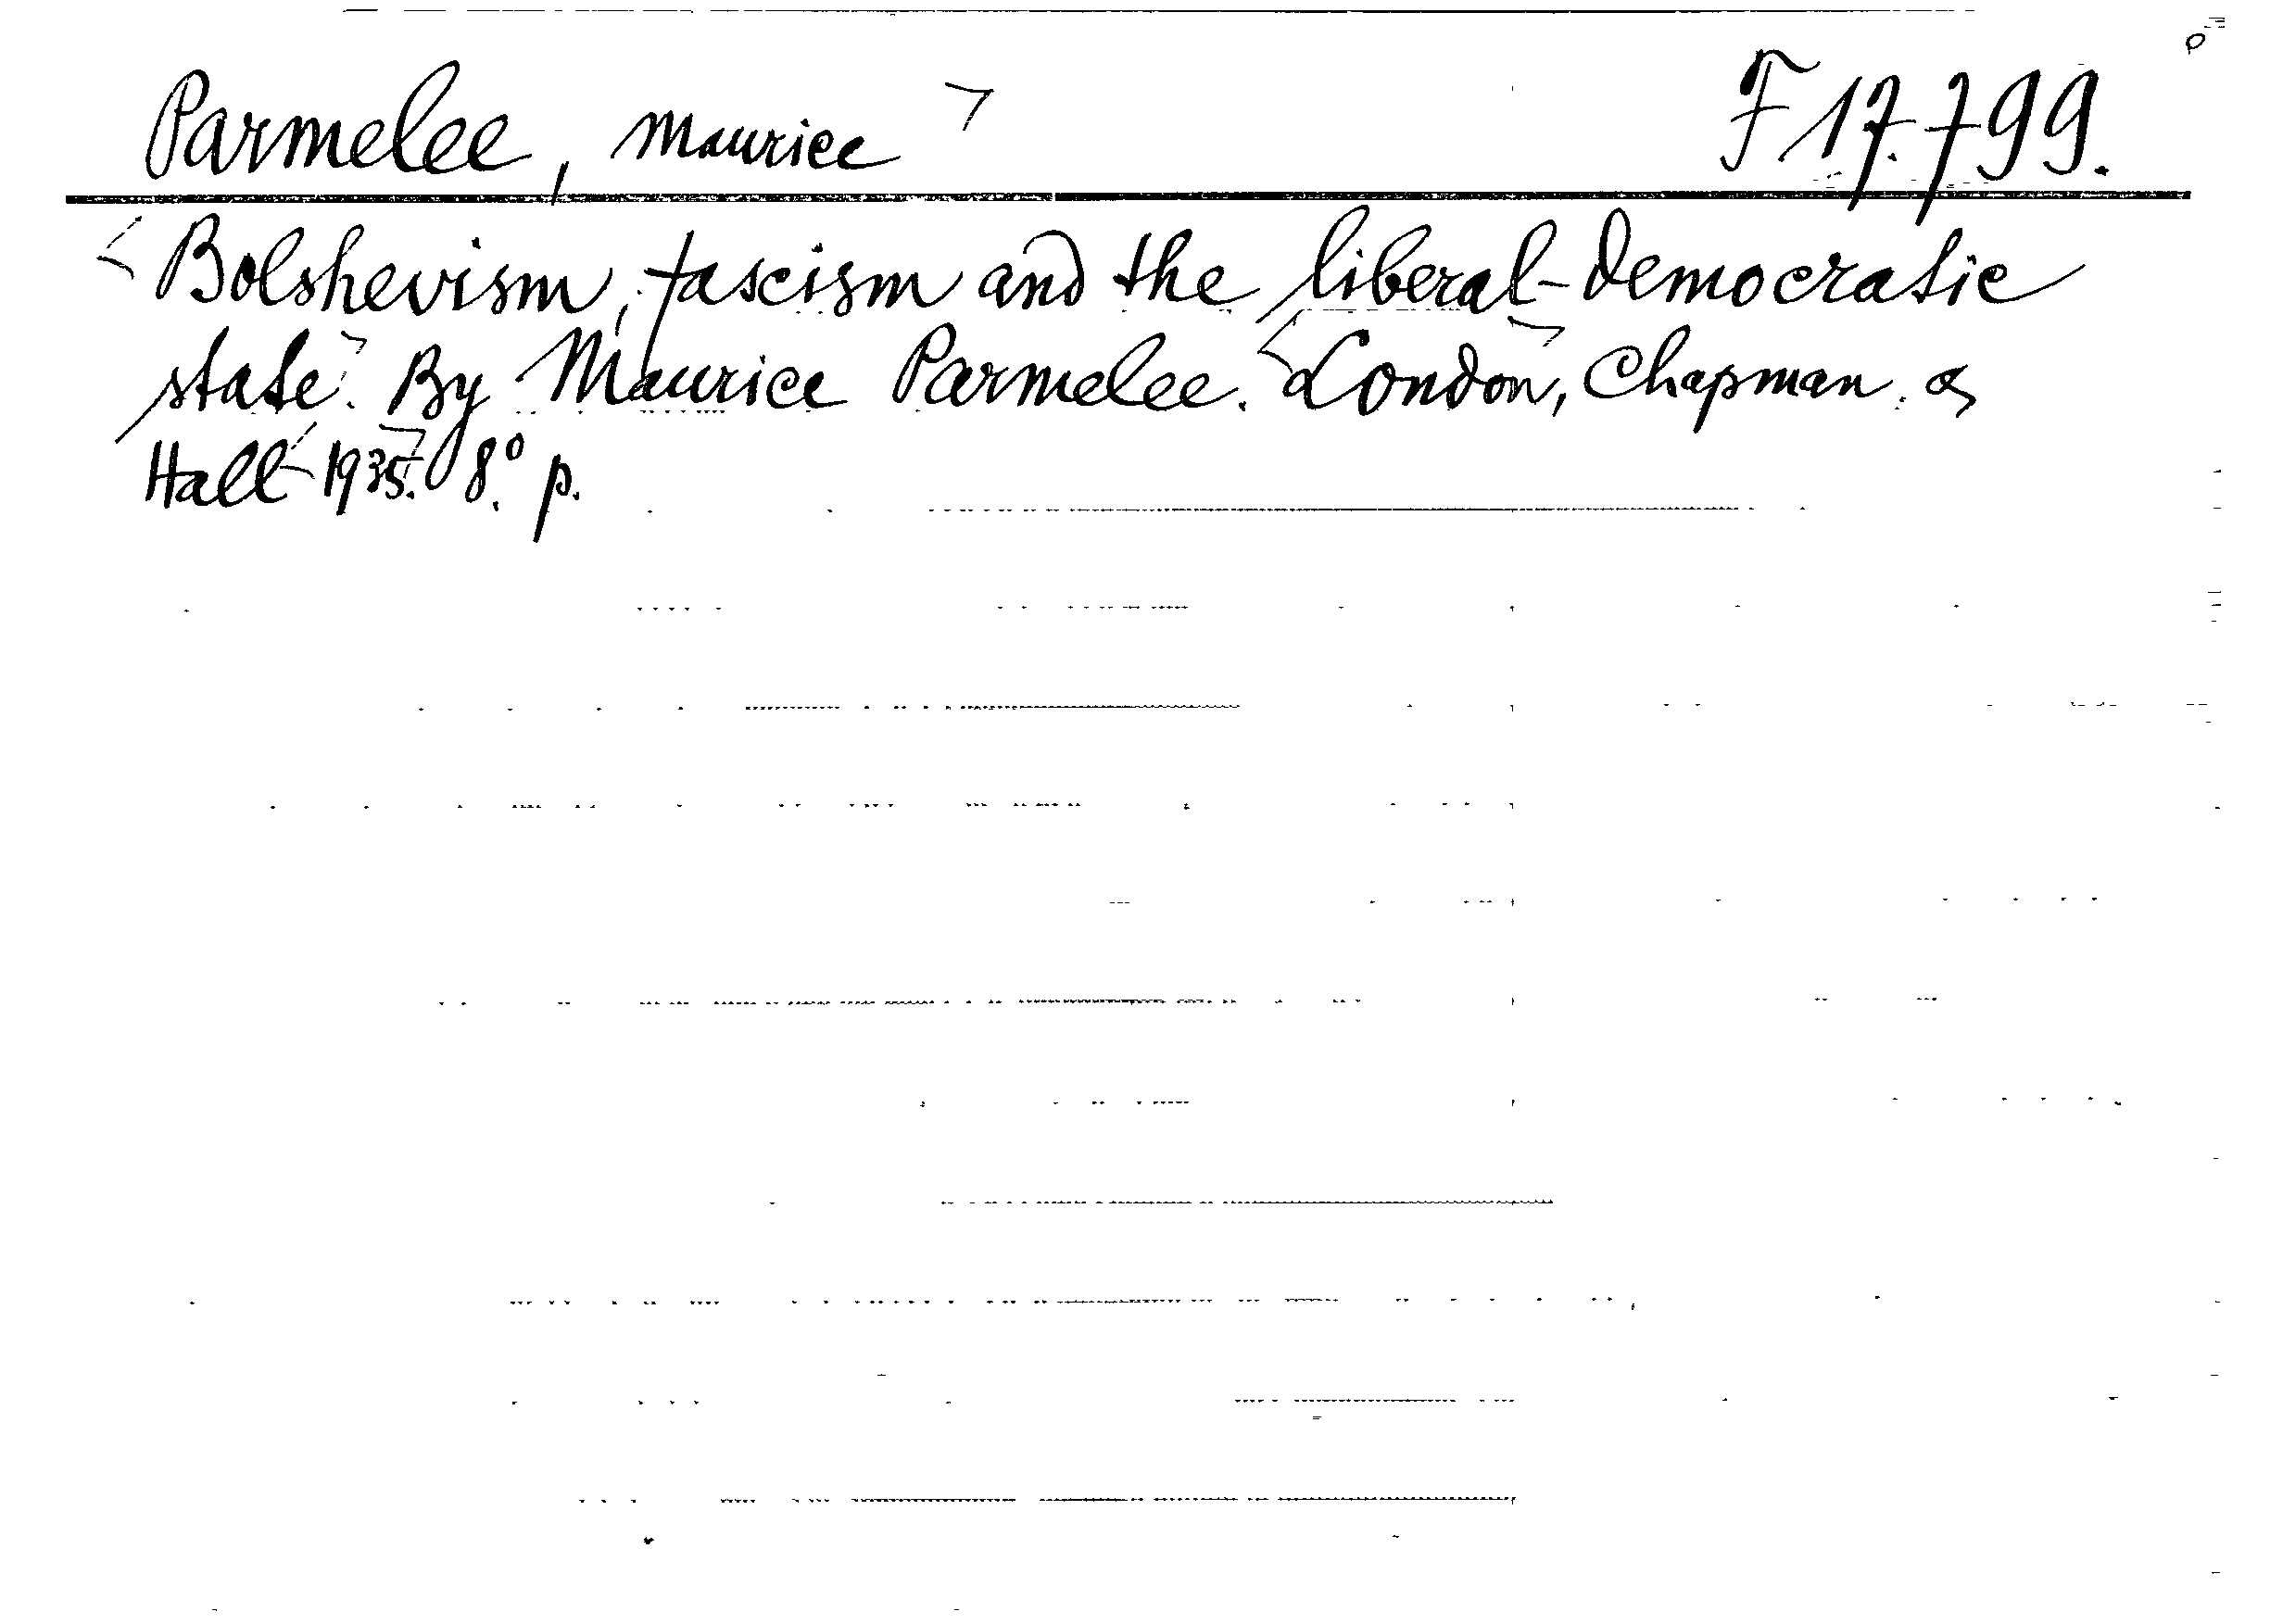 Parmelee, Maurice F 17.799.
Bolshevism, fascism and the liberal-democratic
state. By Maurice Parmelee. London, Chapman &
Hall 1935. 8.° p.